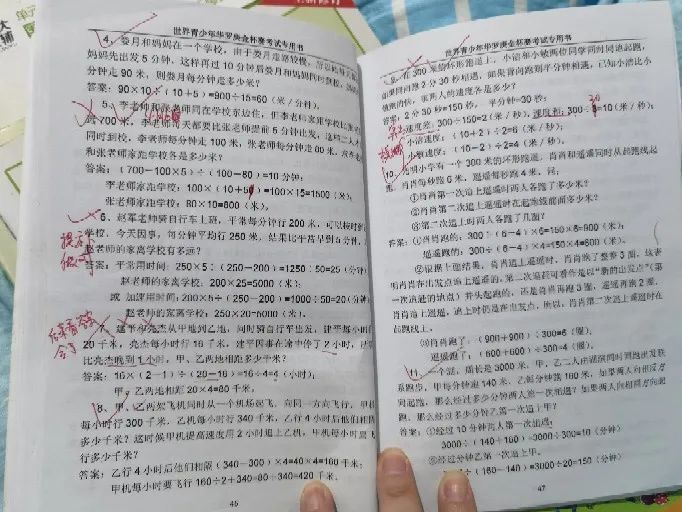 世界青少年华罗庚金杯赛考试专用书
4、娄月和妈妈在一个学校,由于娄月走路较慢,所以她每天
妈妈先出发5分钟,这样再过10分钟后娄月和妈妈同时到校,
分钟走90米,则娄月每分钟走多少米?
答案:90×10÷(10+5)=900÷15=60(米/分钟)。
5、李老师和张老师同在学校东边住,但李老师家距学校比张
700米,李老师每天都要比张老师提前5分钟出发,这样二人
同时到校,李老师每分钟走100米,张老师每分钟走80米,求李老
和张老师家距学校各是多少米?
答案:(700-100×5)÷(100-80)=10分钟;
李老师家距学校:100×(10+5)=100×15=1500(米);
张老师家距学校:80×10=800(米)。
6、赵军老师骑自行车上班,平常每分钟行200米,可以按时到
学校,今天因事,每分钟平均行250米,结果比平常早到5分钟,
赵老师的家离学校有多远?
答案:平常用时间:250×5÷(250-200)=1250÷50=25(分钟)
赵老师的家离学校:200×25=5000(米);
或 加速用时间:200×5÷(250-200)=1000÷50=20(分钟)
赵老师的家离学校:250×20=5000(米)。
7、建平和亮杰从甲地到乙地,同时骑自行车出发,建平每小时
20千米,亮杰每小时行16千米,建平因事在途中停了2小时,
比亮杰晚到1小时,甲、乙两地相距多少千米?
答案:16×(2-1)÷(20-16)=16÷4=4(小时);
甲、乙两地相距20×4=80千米。
8、甲、乙两架飞机同时从一个机场起飞,向同一方向飞行,甲机
每小时行300千米,乙机每小时行340千米,乙行4小时后他们相隔
多少千米?这时候甲机提高速度用2小时追上乙机,甲机每小时要飞
行多少千米?
答案:乙行4小时后他们相隔(340-300)×4=40×4=160千米;
甲机每小时要飞行160÷2+340=80+340=420千米。
46
世界青少年华罗庚金杯赛考试专用书
在300米的环形跑道上,小洁和小敏两位同学同时同地起跑,
如果同向跑2分30秒相遇,如果背向跑半分钟相遇,已知小洁比小
敏跑的快,求两人的速度各是多少?
答案:2分30秒=150秒,半分钟=30秒;
速度差:300÷150=2(米/秒),速度和:300÷30=10(米/秒);
小洁速度:(10+2)÷2=6(米/秒);
小敏速度:(10-2)÷2=4(米/秒)。
10、光明小学有一个300米的环形跑道,肖肖和遥遥同时从起跑线起
跑,肖肖每秒跑6米,遥遥每秒跑4米,问,
①肖肖第一次追上遥遥时两人各跑了多少米?
②肖肖第二次追上遥遥时在起跑线前面多少米?
③第二次追上时两人各跑了几圈?
答案:①肖肖跑的:300÷(6-4)×6=150×6=900(米);
遥遥跑的:300÷(6-4)×4=150×4=600(米)。
②根据上题结果,肖肖追上遥遥时,肖肖跑了整整3圈,这表
明肖肖在出发点追上遥遥的,第二次追赶可看作是以"新的出发点"(第
一次追逐的地点)并头起跑的,还是肖肖再跑3圈,遥遥再跑2圈,
肖肖追上遥遥,追上时仍是在出发点,所以,肖肖第二次追上遥遥时在
起跑线上。
③肖肖跑了:(900+900)÷300=6(圈),
遥遥跑了:(600+600)÷300=4(圈)。
11、一个湖,周长是3000米,甲、乙二人由湖滨同时同地出发环
湖跑步,甲每分钟跑140米,乙每分钟跑160米,如果两人向相反方
向起跑,那么经过多少分钟两人第一次相遇?如果两人向相同方向起
跑,那么经过多少分钟乙第一次追上甲?
答案:①经过10分钟两人第一次相遇:
3000÷(140+160)=3000÷300=10(分钟)
②经过分钟乙第一次追上甲。
÷(160-140)=3000÷20=150(分钟)
47